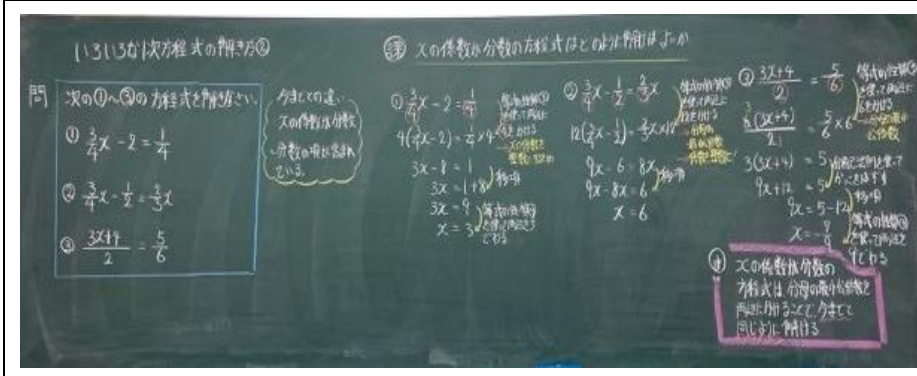 いろいろな1次方程式の解き方②
問 次の①〜③の方程式を解きなさい。
① 3/4x − 2 = 1/4
② 3/4x − 1/2 = 2/3x
③ (3x+4)/2 = 5/6
今までとの違い
xの係数が分数
分数の項が含まれ
ている。
課 xの係数が分数の方程式はどのように解けばよいか
① 3/4x − 2 = 1/4
4(3/4x − 2) = 1/4 × 4
3x − 8 = 1
3x = 1 + 8
移項
3x = 9
x = 3
等式の性質④
を使って両辺を3
でわる
② 3/4x − 1/2 = 2/3x
12(3/4x − 1/2) = 2/3x × 12
9x − 6 = 8x
9x − 8x = 6
移項
x = 6
③ (3x+4)/2 = 5/6
6(3x+4)/2 = 5/6 × 6
3(3x+4) = 5
9x + 12 = 5
かっこをはずす
9x = 5 − 12
移項
x = −7/9
等式の性質④
を使って両辺を
9でわる
ま xの係数が分数の
方程式は、分母の最小公倍数を
両辺にかけることで、今までと
同じように解ける